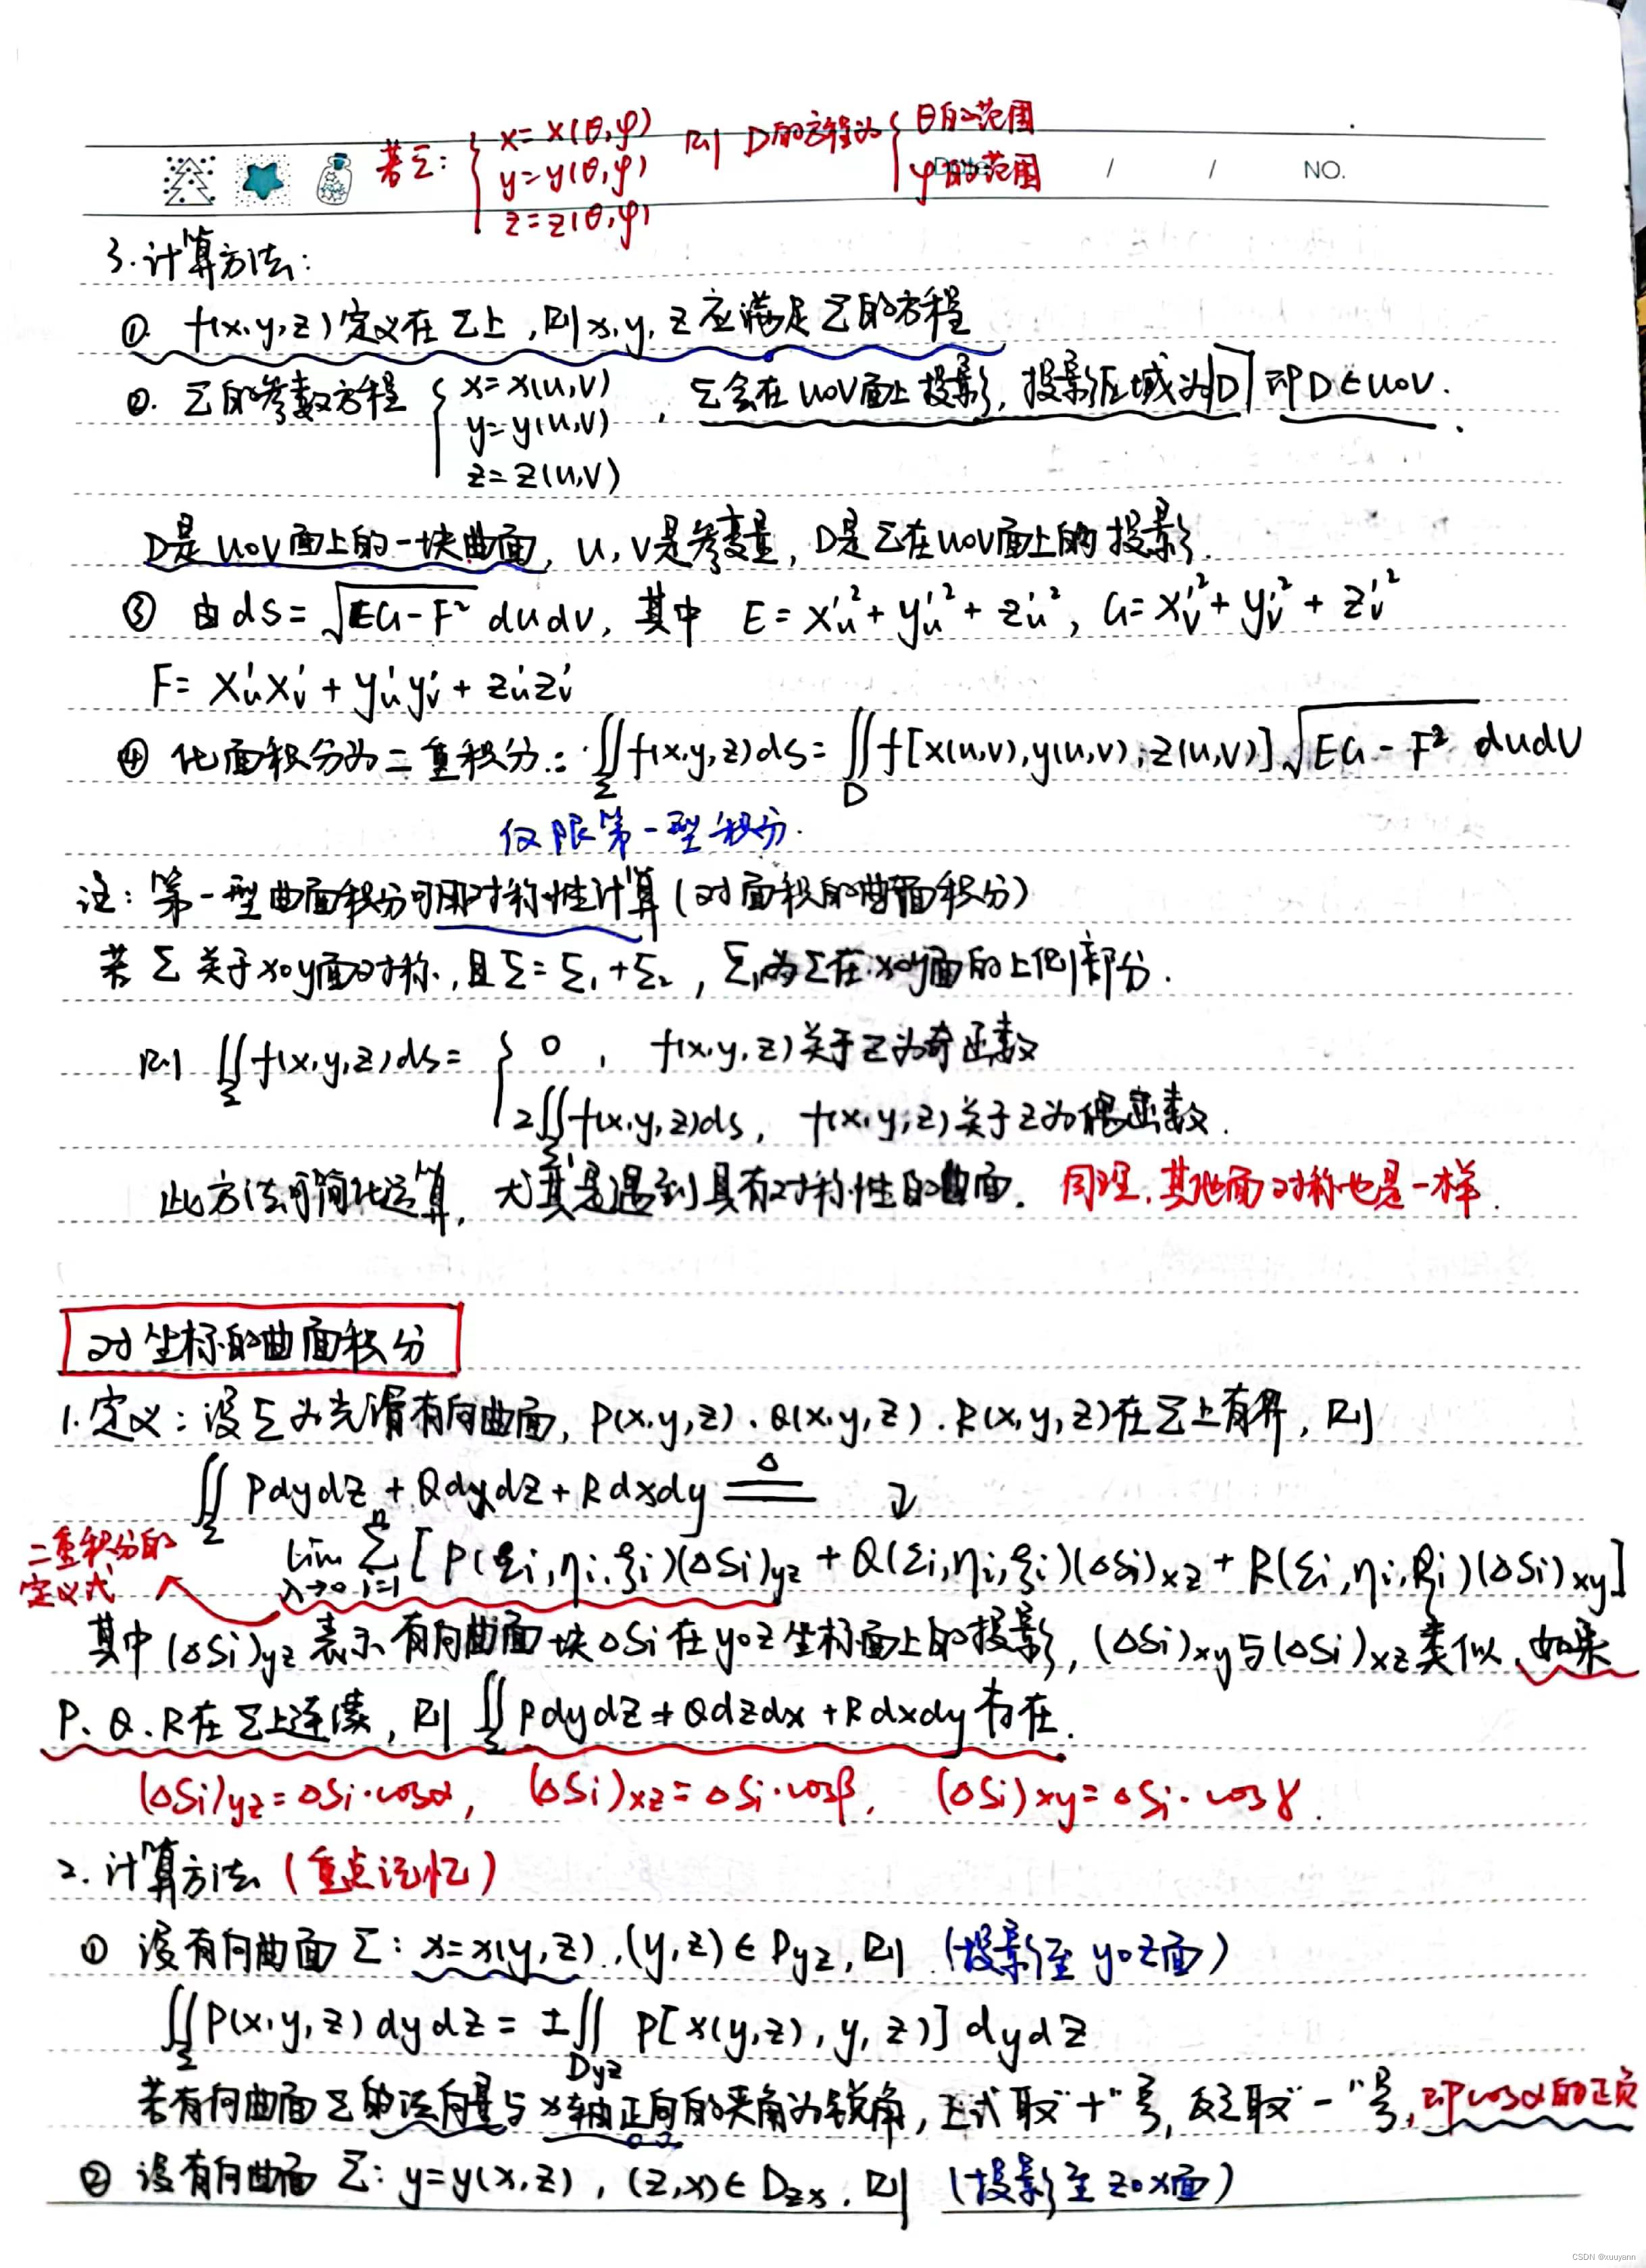 若Σ: { x=x(θ,φ) 则 D的方程为 { θ的范围
y=y(θ,φ) φ的范围
z=z(θ,φ)
/ / NO.
3.计算方法:
①. f(x,y,z)定义在Σ上,则x,y,z应满足Σ的方程
②. Σ的参数方程 { x=x(u,v) , Σ会在uov面上投影, 投影区域为D 即D∈uov.
y=y(u,v)
z=z(u,v)
D是uov面上的一块曲面, u,v是参变量, D是Σ在uov面上的投影.
③ 由dS=√(EG-F²) dudv, 其中 E=x'u²+y'u²+z'u², G=x'v²+y'v²+z'v²
F=x'ux'v+y'uy'v+z'uz'v
④ 化面积分为二重积分: ∬Σ f(x,y,z)ds=∬D f[x(u,v),y(u,v),z(u,v)]√(EG-F²) dudv
仅限第一型积分.
注: 第一型曲面积分可用对称性计算(对面积的曲面积分)
若Σ关于xoy面对称,且Σ=Σ1+Σ2, Σ1为Σ在xoy面的上侧部分.
则 ∬Σ f(x,y,z)ds= { 0, f(x,y,z)关于z为奇函数
2∬Σ1 f(x,y,z)ds, f(x,y,z)关于z为偶函数.
此方法可简化运算, 尤其是遇到具有对称性的曲面. 同理,其他面对称也是一样.
对坐标的曲面积分
1.定义: 设Σ为光滑有向曲面, P(x,y,z).Q(x,y,z).R(x,y,z)在Σ上有界, 则
∬Σ Pdydz+Qdydz+Rdxdy ≜ ↓
二重积分的
定义式
lim λ→0 Σ i=1 n [P(ξi,ηi,ζi)(ΔSi)yz+Q(ξi,ηi,ζi)(ΔSi)xz+R(ξi,ηi,ζi)(ΔSi)xy]
其中(ΔSi)yz表示有向曲面块ΔSi在yoz坐标面上的投影, (ΔSi)xy与(ΔSi)xz类似. 如果
P、Q、R在Σ上连续, 则∬Σ Pdydz+Qdzdx+Rdxdy存在.
(ΔSi)yz=ΔSi·cosα, (ΔSi)xz=ΔSi·cosβ, (ΔSi)xy=ΔSi·cosγ.
2.计算方法(重点记忆)
① 设有向曲面Σ: x=x(y,z),(y,z)∈Dyz, 则 (投影至yoz面)
∬Σ P(x,y,z)dydz=±∬Dyz P[x(y,z),y,z)]dydz
若有向曲面Σ的法向量与x轴正向的夹角为锐角, 上式取"+"号, 反之取"-"号, 即cosα的正负
② 设有向曲面Σ: y=y(x,z), (z,x)∈Dzx, 则 (投影至zox面)
CSDN @xuuyann